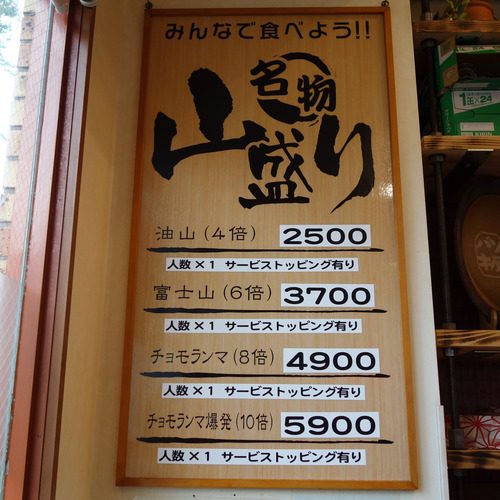 みんなで食べよう!!
名物
山盛り
油山(4倍) 2500
人数×1 サービストッピング有り
富士山(6倍) 3700
人数×1 サービストッピング有り
チョモランマ(8倍) 4900
人数×1 サービストッピング有り
チョモランマ爆発(10倍) 5900
人数×1 サービストッピング有り